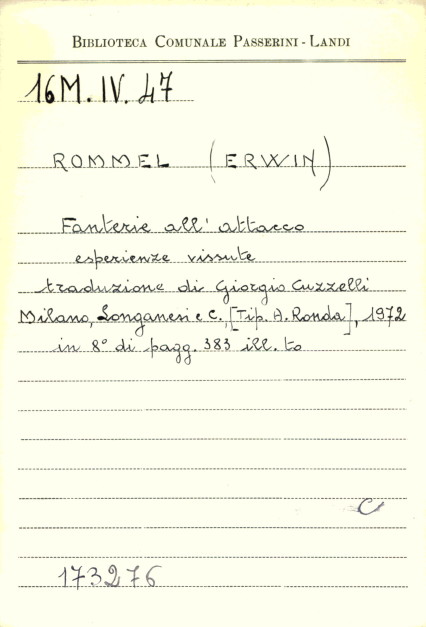 BIBLIOTECA COMUNALE PASSERINI - LANDI
16M. IV. 47
ROMMEL (ERWIN)
Fanterie all' attacco
esperienze vissute
traduzione di Giorgio Cuzzelli
Milano, Longanesi e C., [Tip. A. Ronda], 1972
in 8° di pagg. 383 ill. to
C
173276